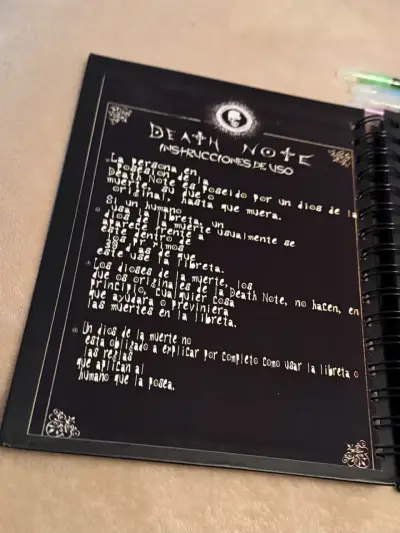 DEATH NOTE
INSTRUCCIONES DE USO
La persona en
posesión de la
Death Note es poseido por un dios de la
muerte, su
original, hasta que muera.
Si un humano
usa la libreta, un
dios de la muerte usualmente se
aparece frente a
este dentro de
los primos
39 días de que
este use la libreta.
Los dioses de la muerte, los
que os originales de la Death Note, no hacen, en
principio, cualquier cosa
que ayudara o previniera
las muertes en la libreta.
Un dios de la muerte no
esta obligado a explicar por completo como usar la libreta o
las reglas
que aplican al
humano que la posea.